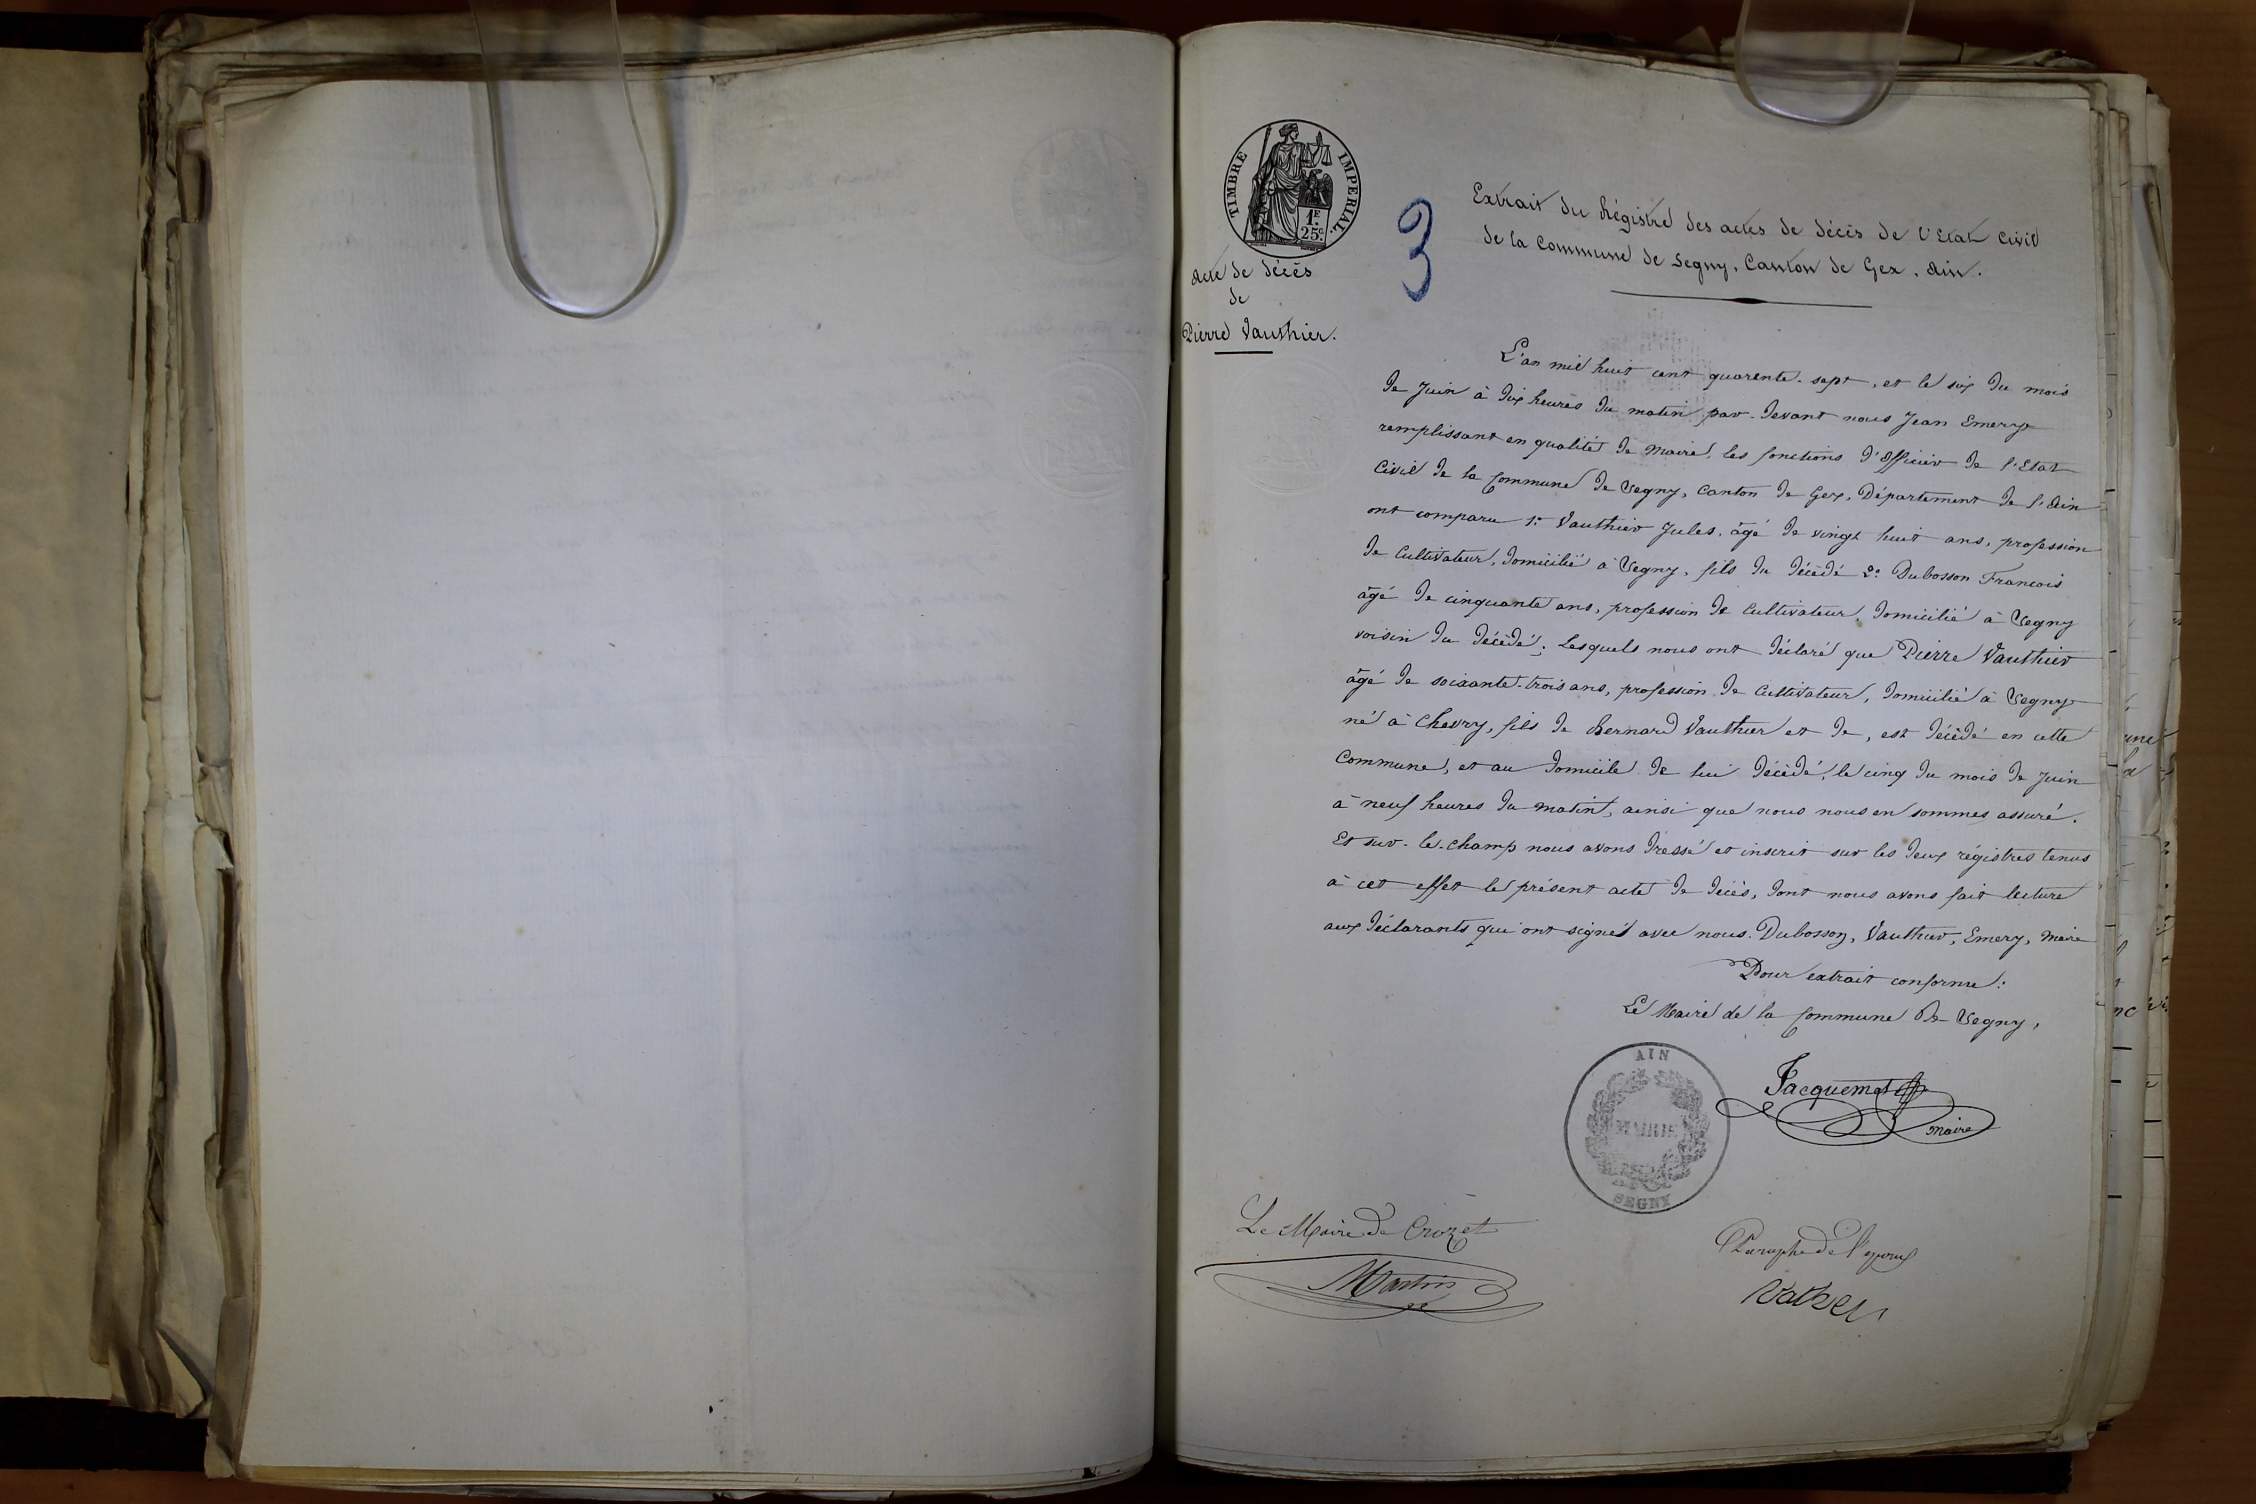 TIMBRE IMPERIAL.
1F.
25c.
3
Extrait du Régistre des actes de décès de l'Etat Civil
de la Commune de Segny, Canton de Gex, Ain.
Acte de décès
de
Pierre Vauthier.
L'an mil huit cent quarente-sept, et le six du mois
de Juin à dix heures du matin par-devant nous Jean Emery
remplissant en qualité de Maire, les fonctions d'Officier de l'Etat
Civil de la Commune de Segny, Canton de Gex, Département de l'Ain
ont comparu 1° Vauthier Jules, âgé de vingt huit ans, profession
de Cultivateur, domicilié à Segny, fils du décédé 2° Dubosson Francois
âgé de cinquante ans, profession de Cultivateur, domicilié à Segny
voisin du décédé; Lesquels nous ont déclaré que Pierre Vauthier
âgé de soixante-trois ans, profession de Cultivateur, domicilié à Segny
né à Chevry, fils de Bernard Vauthier et de, est décédé en cette
Commune, et au domicile de lui décédé, le cinq du mois de Juin
à neuf heures du matin, ainsi que nous nous en sommes assuré.
Et sur-le-champ nous avons dressé et inscrit sur les deux régistres tenus
à cet effet le présent acte de décès, dont nous avons fait lecture
aux déclarants qui ont signés avec nous. Dubosson, Vauthier, Emery, Maire
Pour extrait conforme:
Le Maire de la Commune de Segny,
Jacquemet
maire
AIN
MAIRIE
SEGNY
Le Maire de Crozet
Martin
Paraphe de l'époux